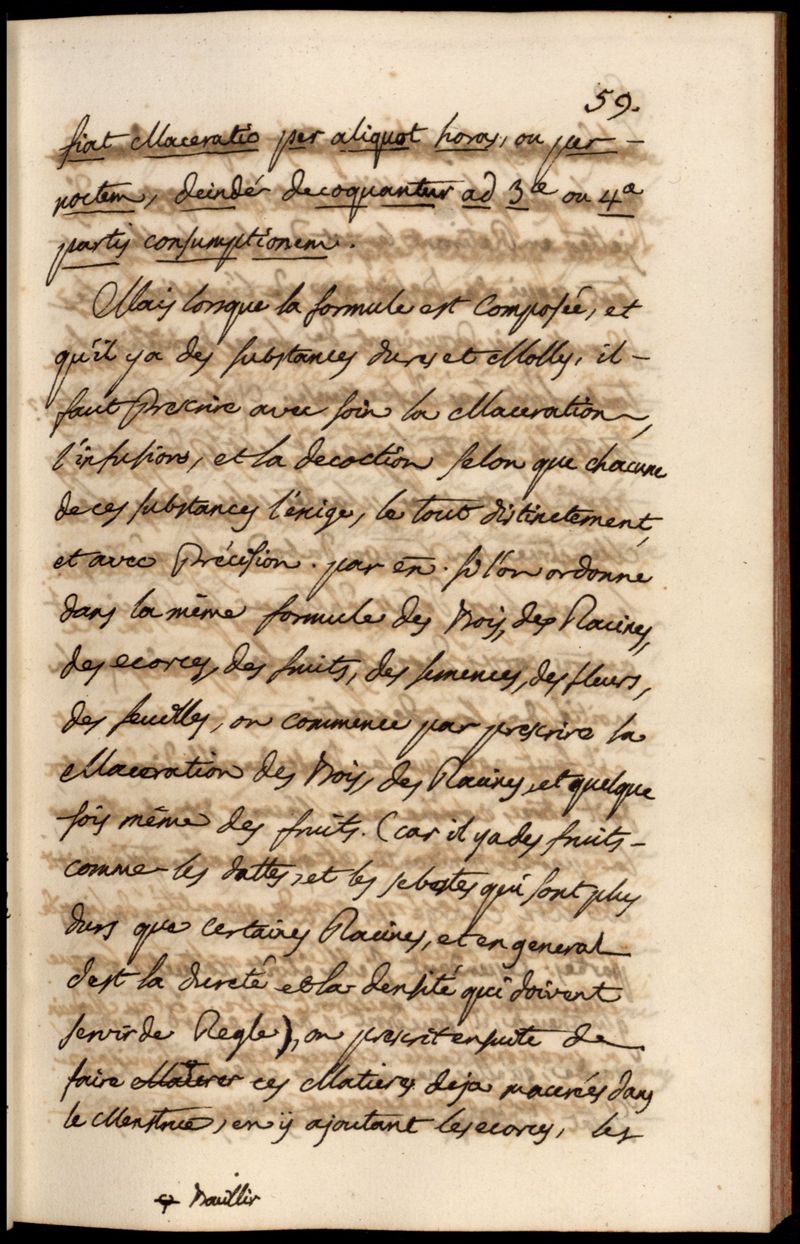 59.
fiat Maceratio per aliquot horas, ou per -
noctem, deindé decoquantur ad 3e ou 4a
partis consumptionem.
Mais lorsque la formule est Composée, et
qu'il y a des substances dures et Molles, il -
faut Prescrire avec soin la Maceration,
l'infusion, et la decoction selon que chacune
de ces substances l'éxige, le tout distinctement,
et avec Précision. par en. si l'on ordonne
dans la même formule des Bois, des Racines,
des ecorces, des fruits, des semences, des fleurs,
des feuilles, on commence par prescrire la
Maceration des Bois, des Racines, et quelque
fois même des fruits. (car il y a des fruits -
comme les dattes, et les sebestes qui sont plus
durs que certaines Racines, et en general
c'est la dureté et la densité qui doivent
servir de Regle), on prescrit ensuite de
faire Macerer ces Matieres deja macerées dans
le Menstrue, en ÿ ajoutant les ecorces, les
Bouillir